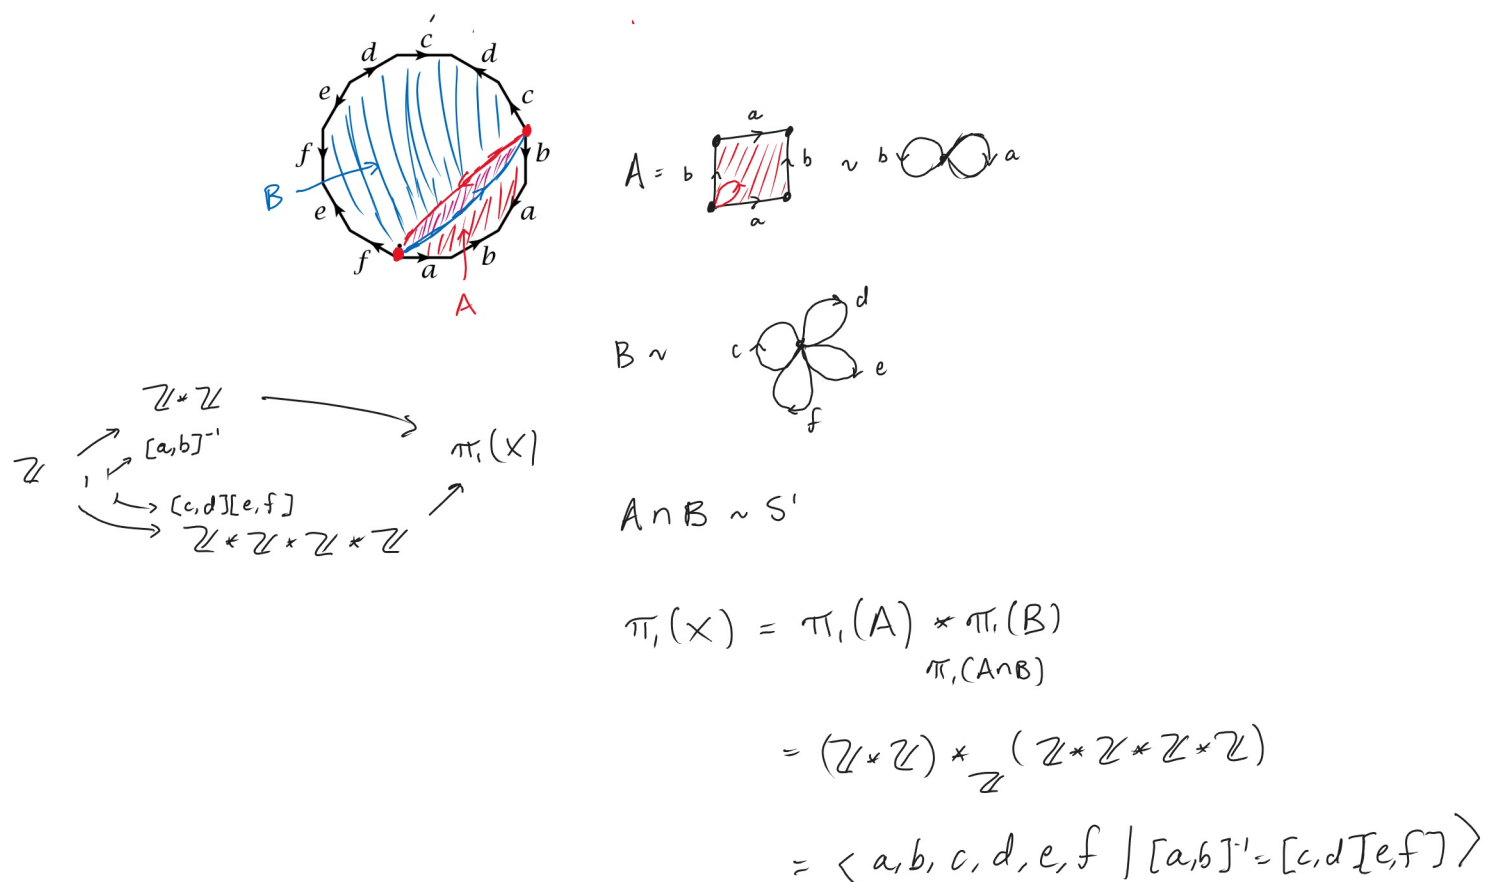 c
d d
e c
f b
B
e a
f a b
A
A = b a b a ~ b a
B ~ c d e f
ℤ * ℤ
[a,b]⁻¹
ℤ 1 π₁(X)
[c,d][e,f]
ℤ * ℤ * ℤ * ℤ
A∩B ~ S¹
π₁(X) = π₁(A) * π₁(B)
π₁(A∩B)
= (ℤ * ℤ) *_ℤ (ℤ * ℤ * ℤ * ℤ)
= < a, b, c, d, e, f | [a,b]⁻¹ = [c,d][e,f] >